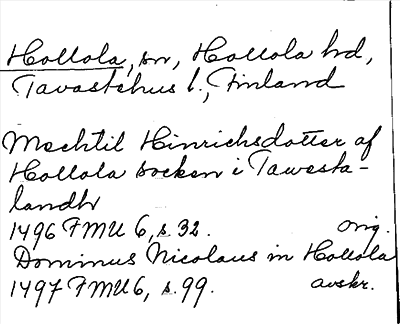 Hollola, sn, Hollola hd,
Tavastehus l., Finland
Mechtil Hinrichsdotter af
Hollola socken i Tawesta-
landh
1496 FMU 6, s. 32. orig.
Dominus Nicolaus in Hollola
1497 FMU 6, s. 99. avskr.